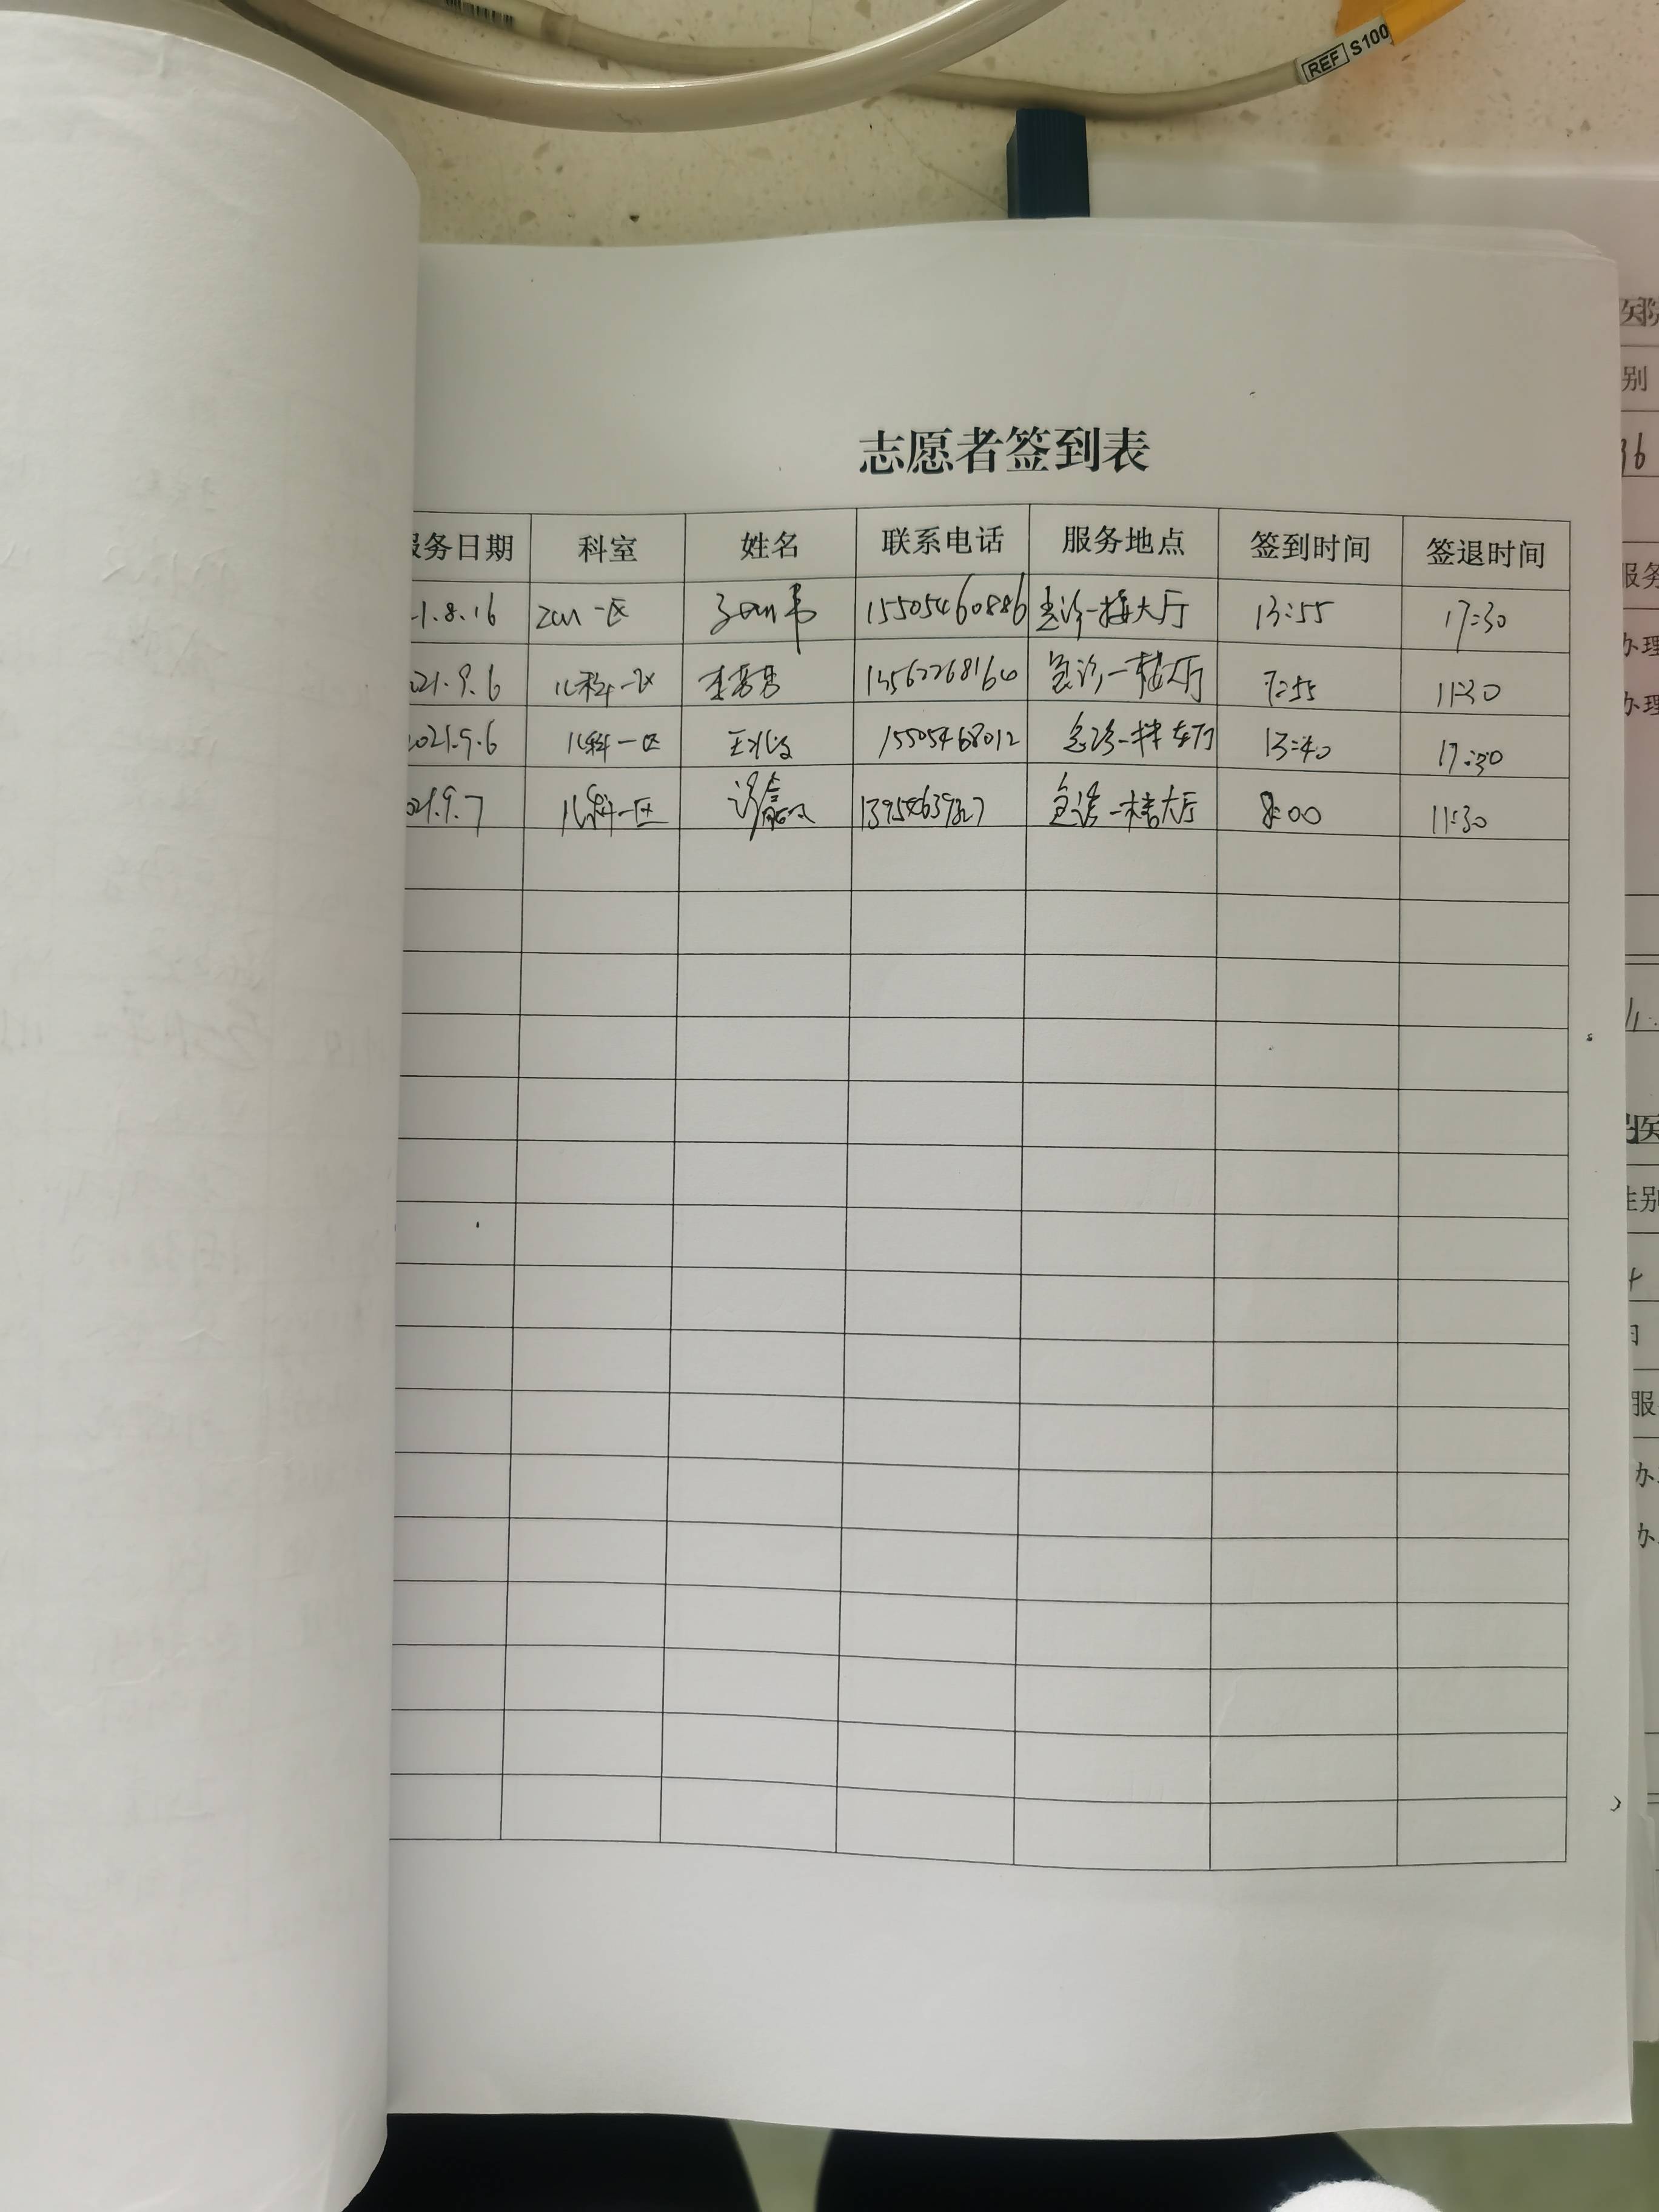 REF S100
志愿者签到表
服务日期 科室 姓名 联系电话 服务地点 签到时间 签退时间
1.8.16 ICU一区 15505460886 急诊一楼大厅 13:55 17:30
021.9.6 儿科一区 李萻萻 13562268160 急诊一楼大厅 7:55 11:30
2021.9.6 儿科一区 15505468012 急诊一楼大厅 13:40 17:30
021.9.7 儿科一区 急诊一楼大厅 8:00 11:30
别
36
服务
办理
办理
性别
服
办
办